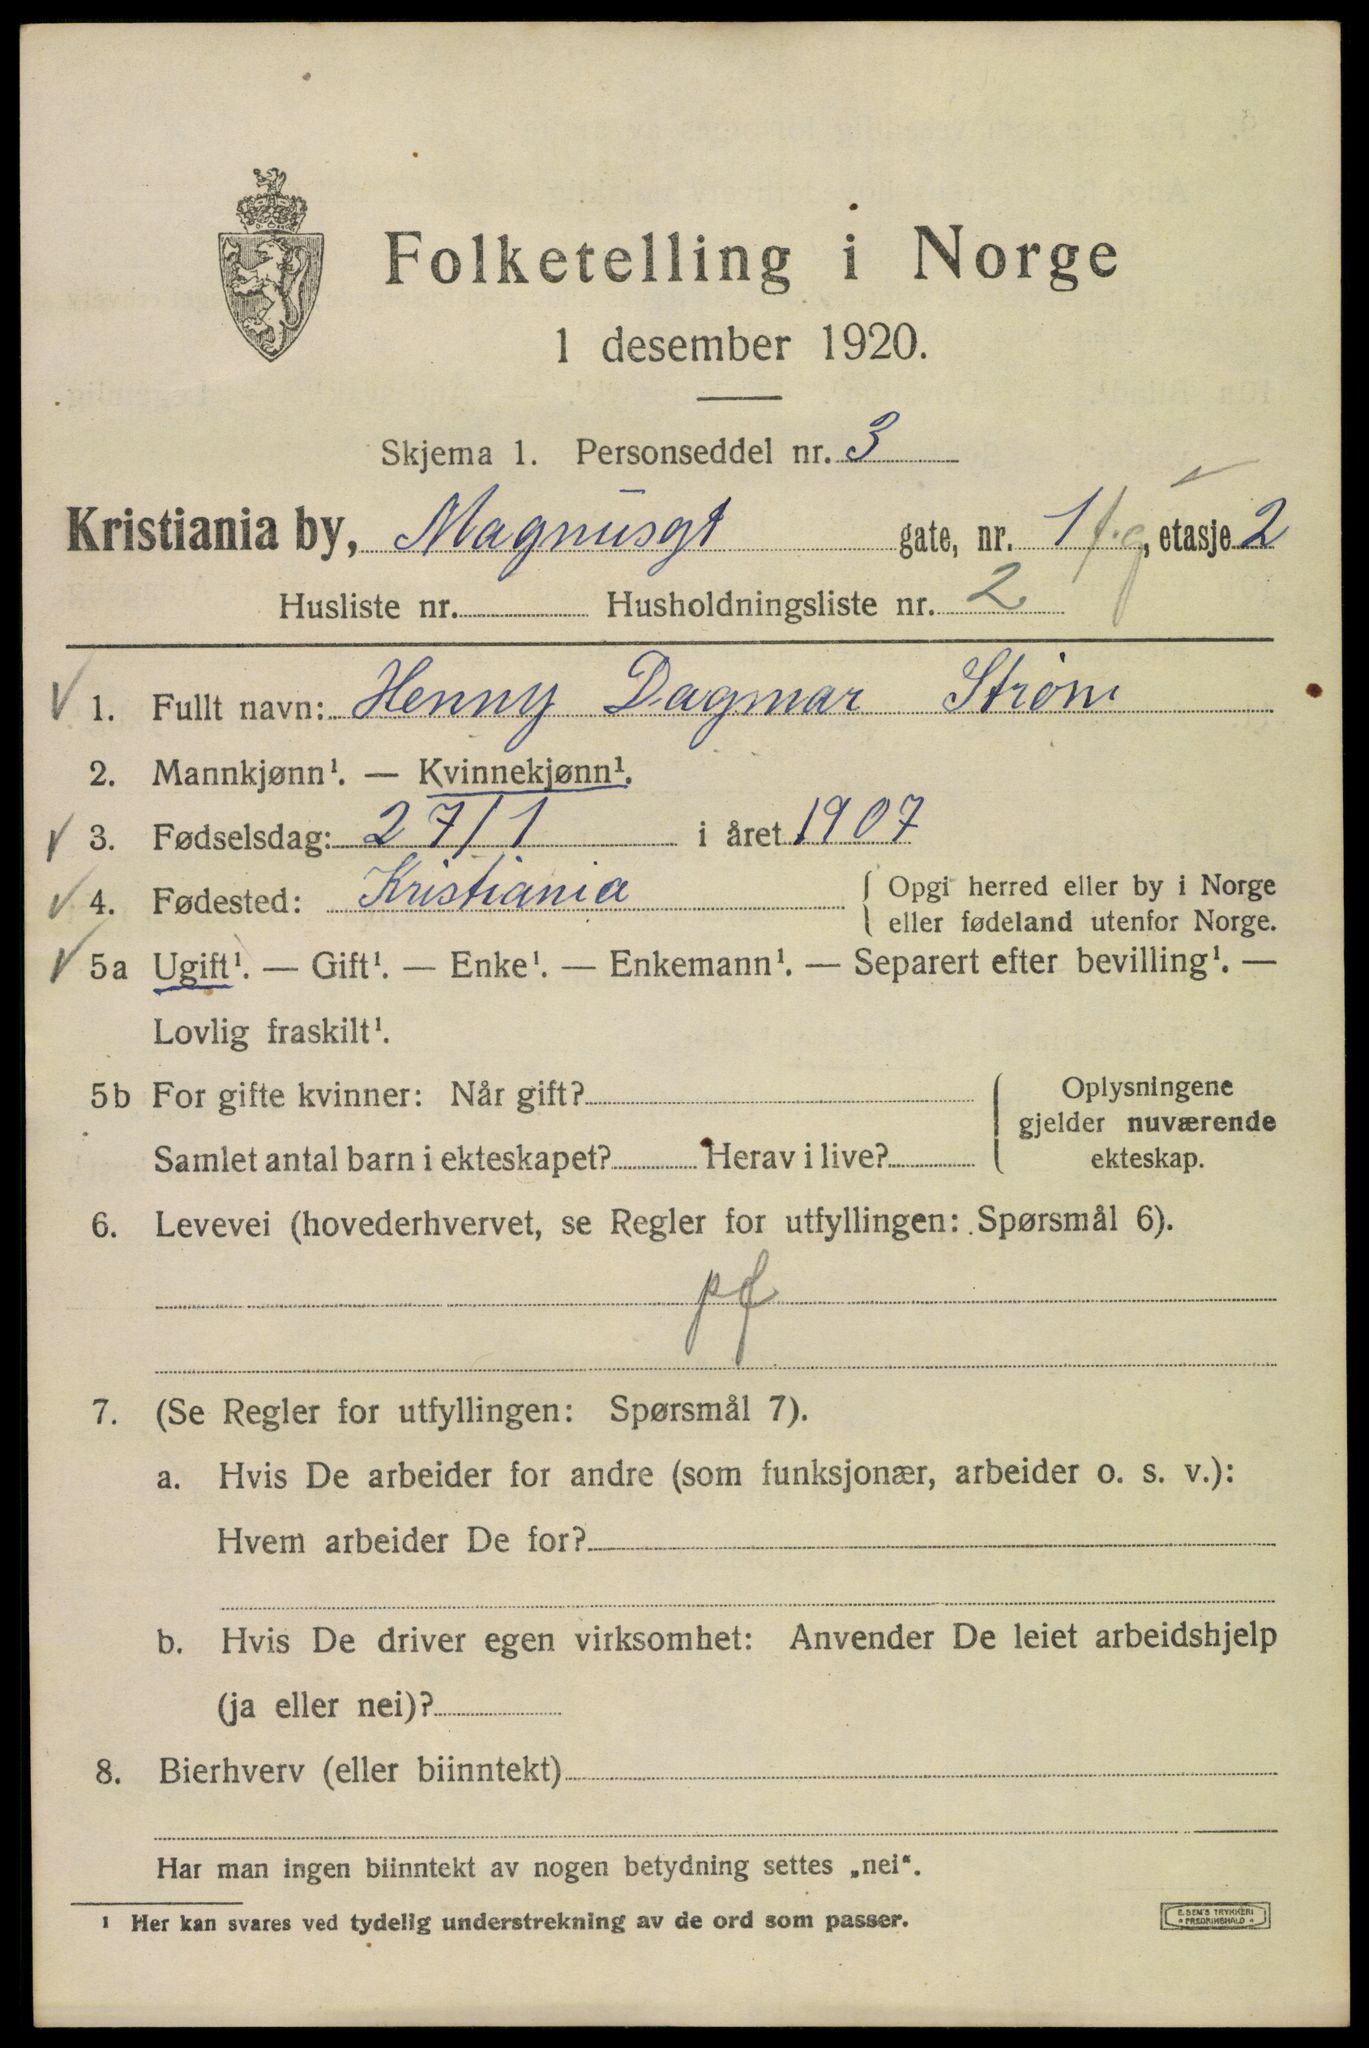 Folketelling i Norge
1 desember 1920.
Skjema 1. Personseddel nr. 3
Kristiania by, Magnusgt gate, nr. 1 f.g, etasje 2
Husliste nr. Husholdningsliste nr. 2
1. Fullt navn: Henny Dagmar Strøm
2. Mannkjønn¹. — Kvinnekjønn¹.
3. Fødselsdag: 27/1 i året 1907
4. Fødested: Kristiania { Opgi herred eller by i Norge
eller fødeland utenfor Norge.
5a Ugift¹. — Gift¹. — Enke¹. — Enkemann¹. — Separert efter bevilling¹. —
Lovlig fraskilt¹.
5b For gifte kvinner: Når gift? { Oplysningene
gjelder nuværende
Samlet antal barn i ekteskapet? Herav i live?
ekteskap.
6. Levevei (hovederhvervet, se Regler for utfyllingen: Spørsmål 6).
pf
7. (Se Regler for utfyllingen: Spørsmål 7).
a. Hvis De arbeider for andre (som funksjonær, arbeider o. s. v.):
Hvem arbeider De for?
b. Hvis De driver egen virksomhet: Anvender De leiet arbeidshjelp
(ja eller nei)?
8. Bierhverv (eller biinntekt)
Har man ingen biinntekt av nogen betydning settes „nei“.
¹ Her kan svares ved tydelig understrekning av de ord som passer.
E. SEM'S TRYKKERI
FREDRIKSHALD